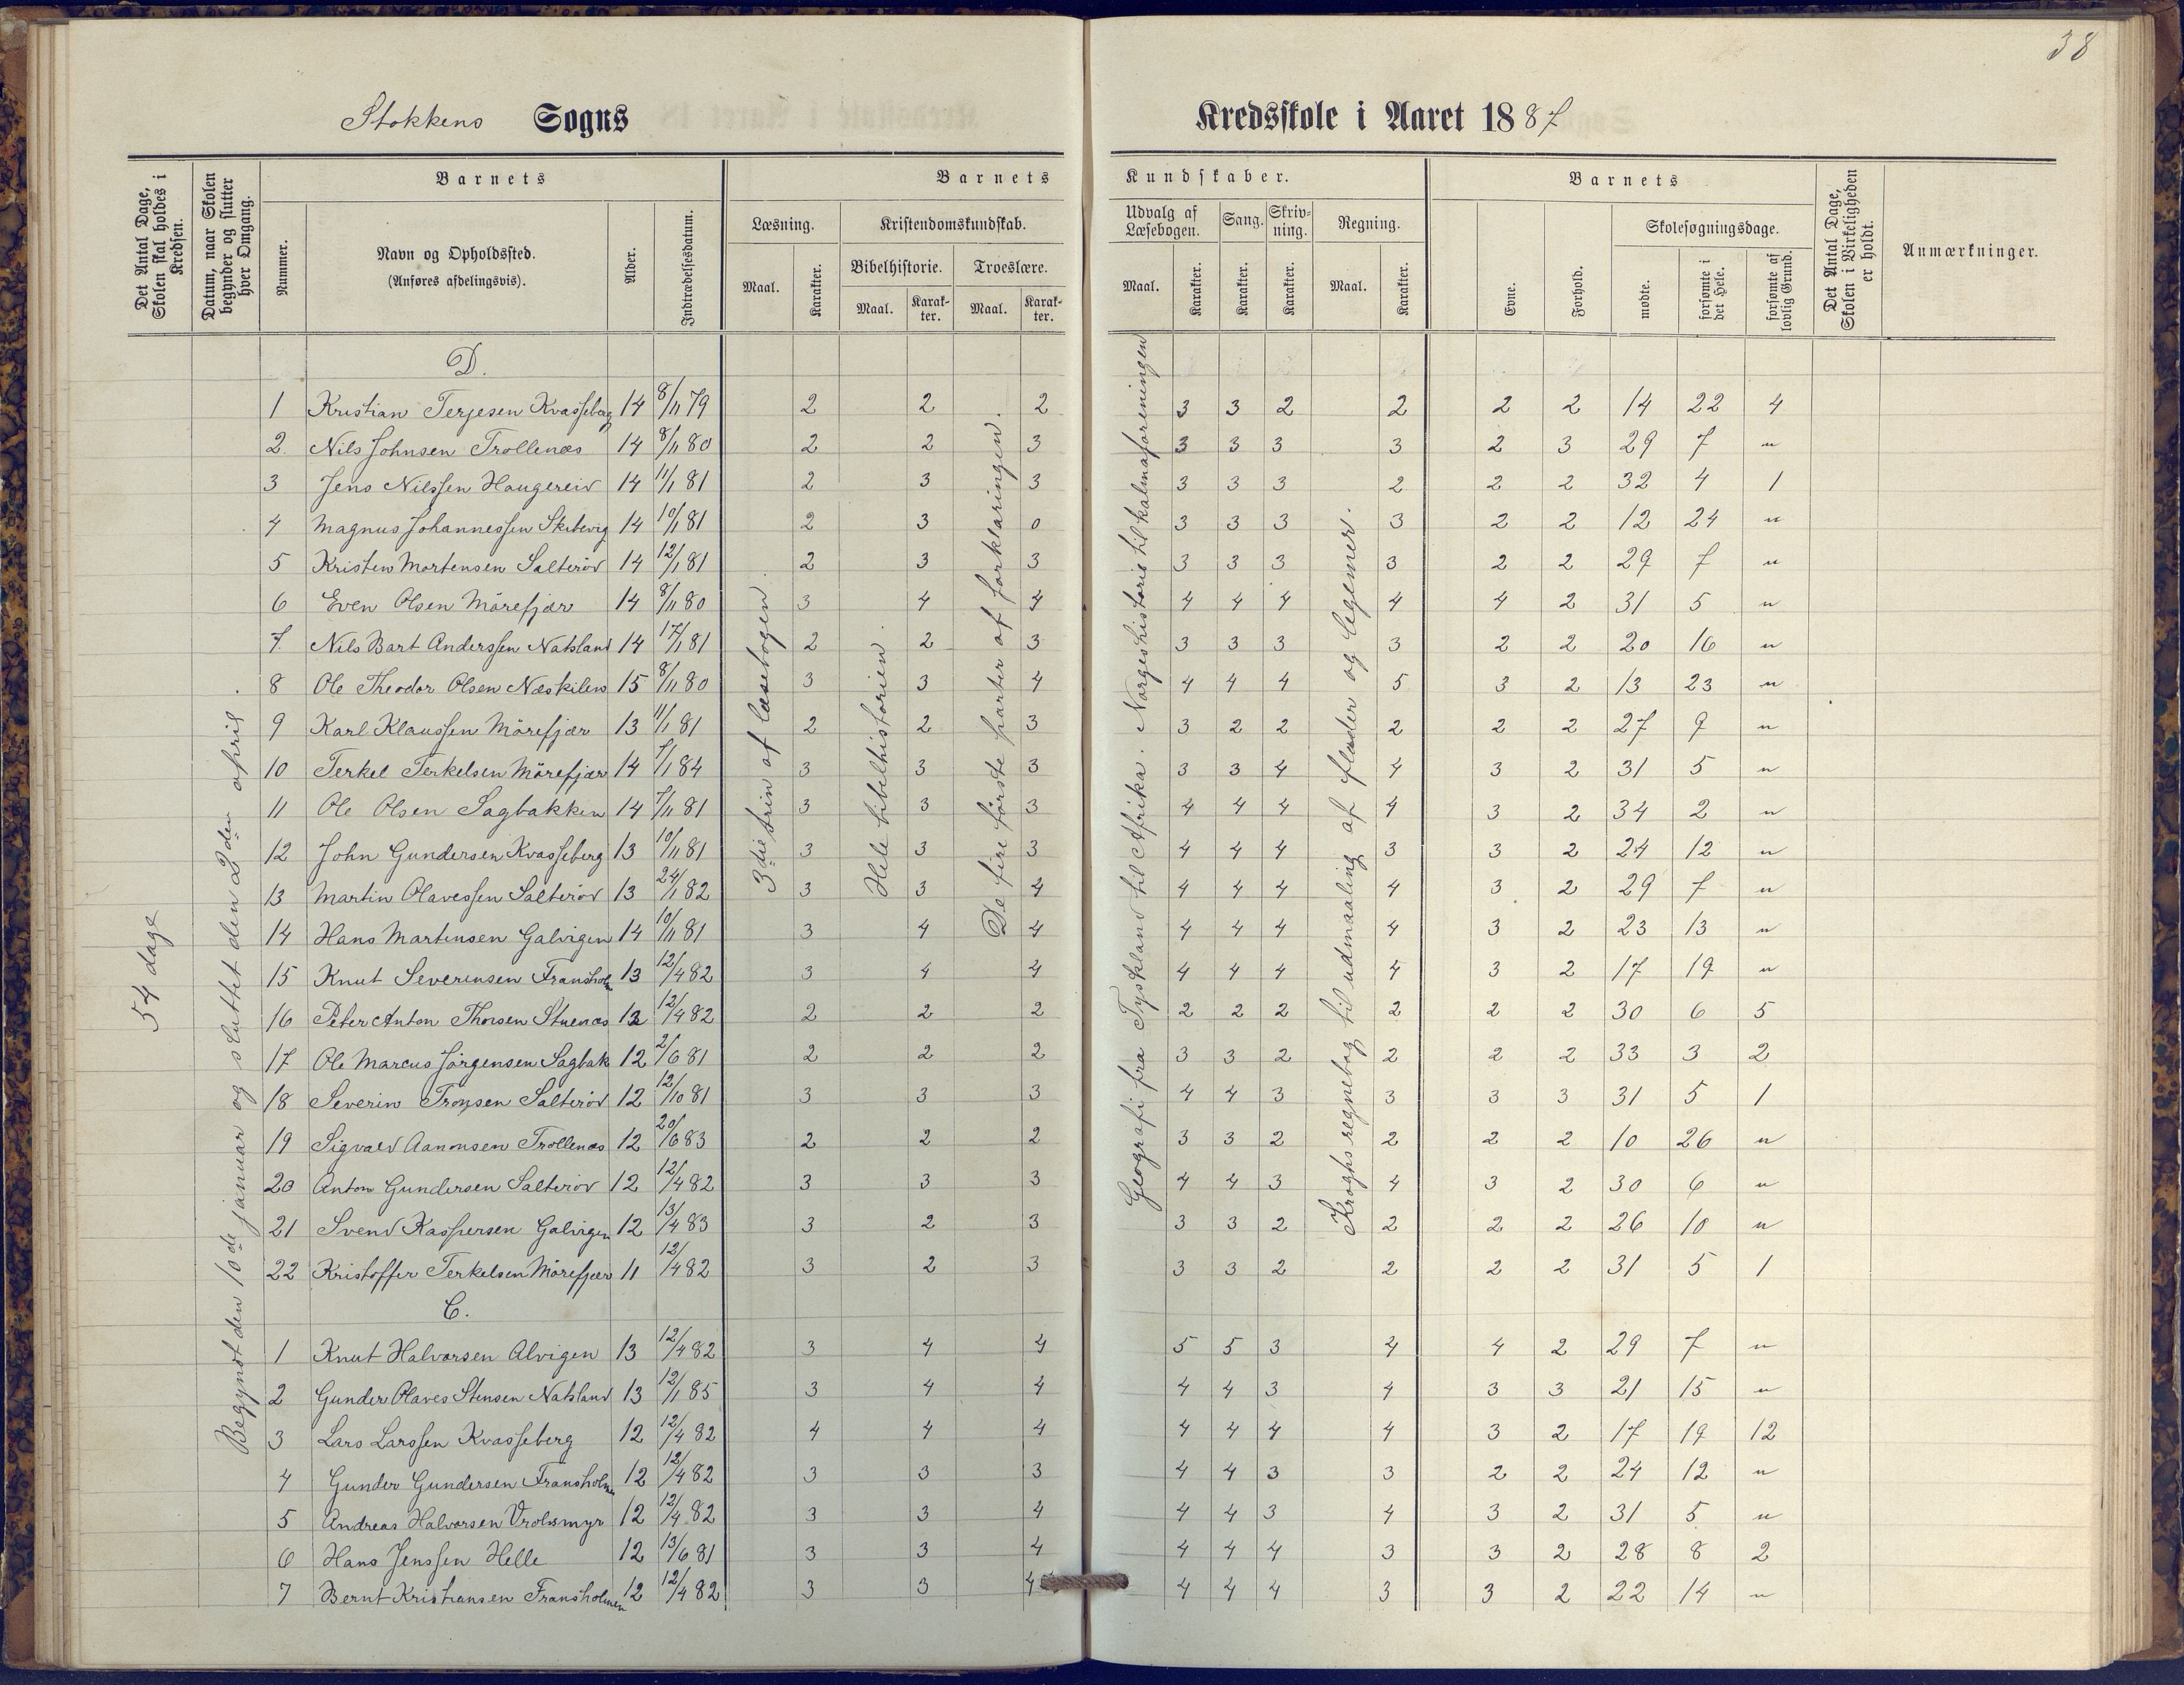 38
Stokkens Sogns Kredsskole i Aaret 1887
Det Antal Dage, Skolen skal holdes i Kredsen.
Datum, naar Skolen begynder og slutter hver Omgang.
Barnets
Nummer.
Navn og Opholdssted.
(Anføres afdelingsvis).
Alder.
Indtrædelsesdatum.
Barnets Kundskaber.
Læsning.
Maal.
Karakter.
Kristendomskundskab.
Bibelhistorie.
Maal.
Karak-
ter.
Troeslære.
Maal.
Karak-
ter.
Udvalg af
Læsebogen.
Maal.
Karakter.
Sang.
Karakter.
Skriv-
ning.
Karakter.
Regning.
Maal.
Karakter.
Barnets
Evne.
Forhold.
Skolesøgningsdage.
mødte.
forsømte i det Hele.
forsømte af lovlig Grund.
Det Antal Dage, Skolen i Virkeligheden er holdt.
Anmærkninger.
54 dage
Begyndt den 10de januar og sluttet den 2den april
3die trin af læsebogen.
Hele bibelhistorien.
De fire første parter af forklaringen.
Geografi fra Tyskland til Afrika. Norgeshistorie til kalmaforeningen
Kroghs regnebog til udmaaling af flader og legemer.
D.
1 Kristian Terjesen Kvasseberg 14 8/11 79 2 2 2 3 3 2 2 2 2 14 22 4
2. Nils Johnsen Trollenæs 14 8/11 80 2 2 3 3 3 3 3 2 3 29 7 "
3 Jens Nilssen Haugereid 14 11/1 81 2 3 3 3 3 3 2 2 2 32 4 1
4 Magnus Johannessen Skibevig 14 10/1 81 2 3 0 3 3 3 3 2 2 12 24 "
5 Kristen Mortensen Salterød 14 12/1 81 2 3 3 3 3 3 3 2 2 29 7 "
6 Even Olsen Mörefjær 14 8/11 80 3 4 4 4 4 4 4 4 2 31 5 "
7. Nils Bart Anderssen Natsland 14 17/1 81 2 2 3 3 3 3 3 2 2 20 16 "
8 Ole Theodor Olsen Næskilen 15 8/11 80 3 3 4 4 4 4 5 3 2 13 23 "
9 Karl Klaussen Mörefjær 13 11/1 81 2 2 3 3 2 2 2 2 2 27 9 "
10 Terkel Terkelsen Mörefjær 14 7/1 84 3 3 3 3 3 4 4 3 2 31 5 "
11 Ole Olsen Sagbakken 14 7/11 81 3 3 3 4 4 4 4 3 2 34 2 "
12 John Gundersen Kvasseberg 13 10/11 81 3 3 3 4 4 4 3 3 2 24 12 "
13 Martin Olavessen Salterød 13 24/1 82 3 3 4 4 4 4 4 3 2 29 7 "
14 Hans Martinsen Galvigen 14 10/11 81 3 4 4 4 4 4 4 3 2 23 13 "
15 Knut Severinsen Fransholm 13 12/4 82 3 4 4 4 4 4 4 3 2 17 19 "
16 Peter Anton Thorsen Stuenæs 12 12/4 82 2 2 2 2 2 2 2 2 2 30 6 5
17 Ole Marcus Jörgensen Sagbak 12 2/6 81 2 2 2 3 3 2 2 2 2 33 3 2
18 Severin Tronsen Salterød 12 12/10 81 3 3 3 4 4 3 3 3 3 31 5 1
19 Sigvald Aanonsen Trollenæs 12 20/6 83 2 2 2 3 3 2 2 2 2 10 26 "
20 Anton Gundersen Salterød 12 12/4 82 3 3 3 4 4 3 4 3 2 30 6 "
21 Svend Kaspersen Galvigen 12 13/4 83 3 2 3 3 3 2 2 2 2 26 10 "
22 Kristoffer Terkelsen Mörefjær 11 12/4 82 3 2 3 3 3 2 2 2 2 31 5 1
C.
1 Knut Halvorsen Alvigen 13 12/4 82 3 4 4 5 5 3 4 4 2 29 7 "
2 Gunder Olaves Stensen Natsland 13 12/1 85 3 4 4 4 4 3 4 3 3 21 15 "
3 Lars Larssen Kvasseberg 12 12/4 82 4 4 4 4 4 4 4 3 2 17 19 12
4 Gunder Gundersen Fransholmen 12 12/4 82 3 3 3 4 4 3 3 2 2 24 12 "
5 Andreas Halvorsen Vrolsmyr 12 12/4 82 3 3 4 4 4 3 4 3 2 31 5 "
6 Hans Jenssen Helle 12 13/6 81 3 3 4 4 4 4 3 3 2 28 8 2
7 Bernt Kristiansen Fransholmen 12 12/4 82 3 3 4 4 4 4 3 3 2 22 14 "